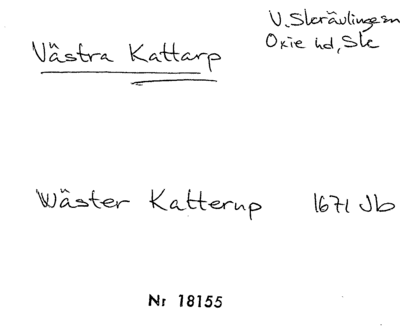 V. Skrävlinge sn
Oxie hd, Sk
Västra Kattarp
Wäster Katterup 1671 Jb
Nr 18155